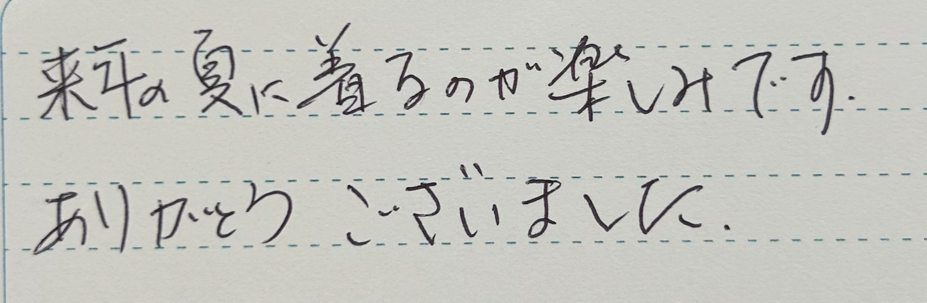 来年の夏に着るのが楽しみです.
ありがとう ございました.